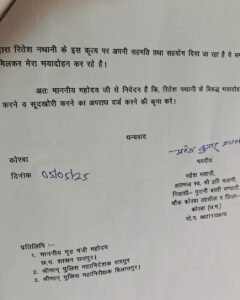 द्वारा रितेश नथानी के इस कृत्य पर अपनी सहमति तथा सहयोग दिया जा रहा है ये सभी
मिलकर मेरा भयादोहन कर रहे है।
अतः माननीय महोदय जी से निवेदन है कि, रितेश नथानी के विरूद्ध भयादोहन
करने व सूदखोरी करने का अपराध दर्ज करने की कृपा करें।
धन्यवाद
कोरबा
दिनांक 05/05/25
भवदीय
महेश
आत्मज स्व. श्री
निवासी- पुरानी बस्ती
चौक कोरबा तहसील व जिला-
कोरबा (छ.ग.)
मो.नं.
प्रतिलिपि :-
1. माननीय गृह मंत्री महोदय
छ.ग. शासन रायपुर।
2. श्रीमान् पुलिस महानिदेशक रायपुर
3. श्रीमान् पुलिस महानिरीक्षक बिलासपुर।